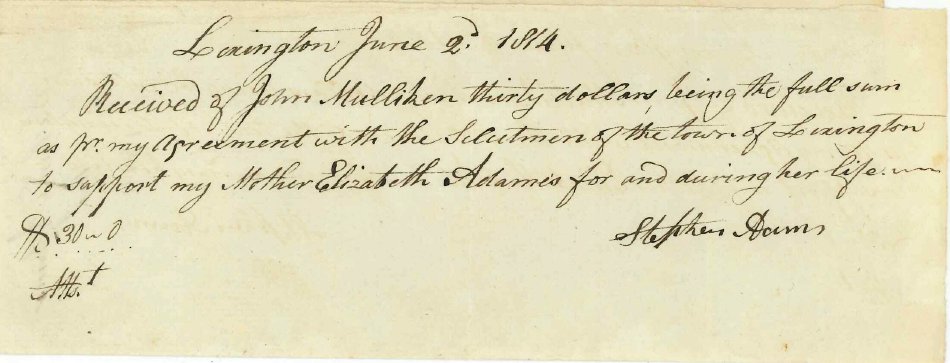 Lexington June 2d. 1814.
Received of John Mulliken thirty dollars being the full sum
as pr. my agreement with the Selectmen of the town of Lexington
to support my Mother Elizabeth Adames for and during her life.
$ 30 ~ 0
Stephen Adams
Att.t